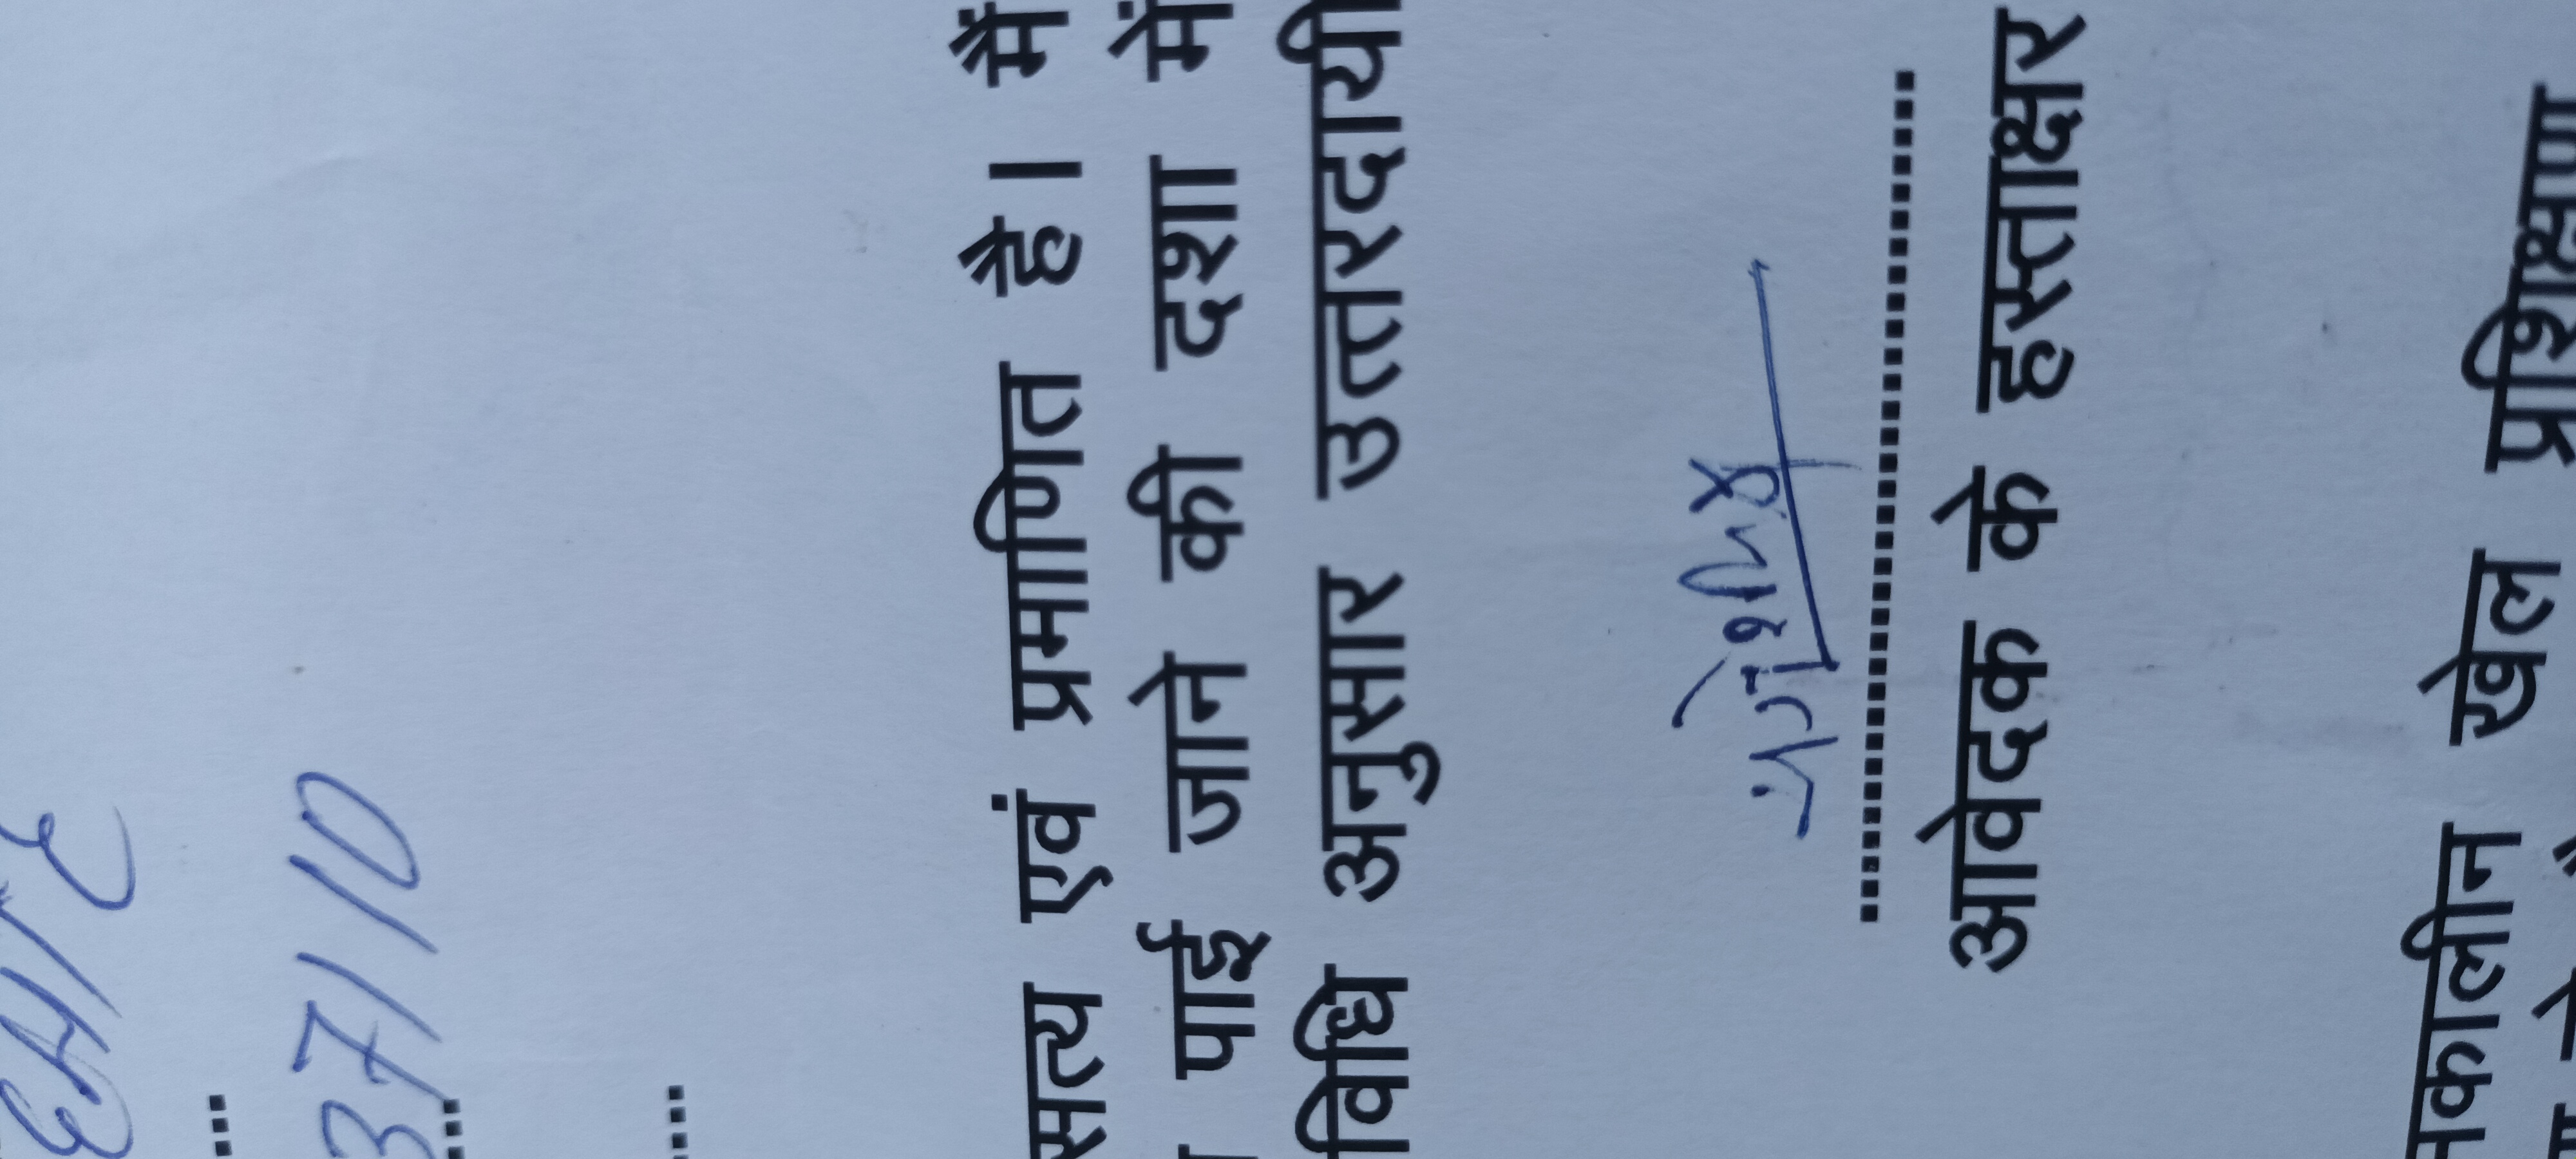 37110
सत्य एवं प्रमाणित है। मैं
पाई जाने की दशा में
विधि अनुसार उत्तरदायी
आवेदक के हस्ताक्षर
नकालीन खेल प्रशिक्षण